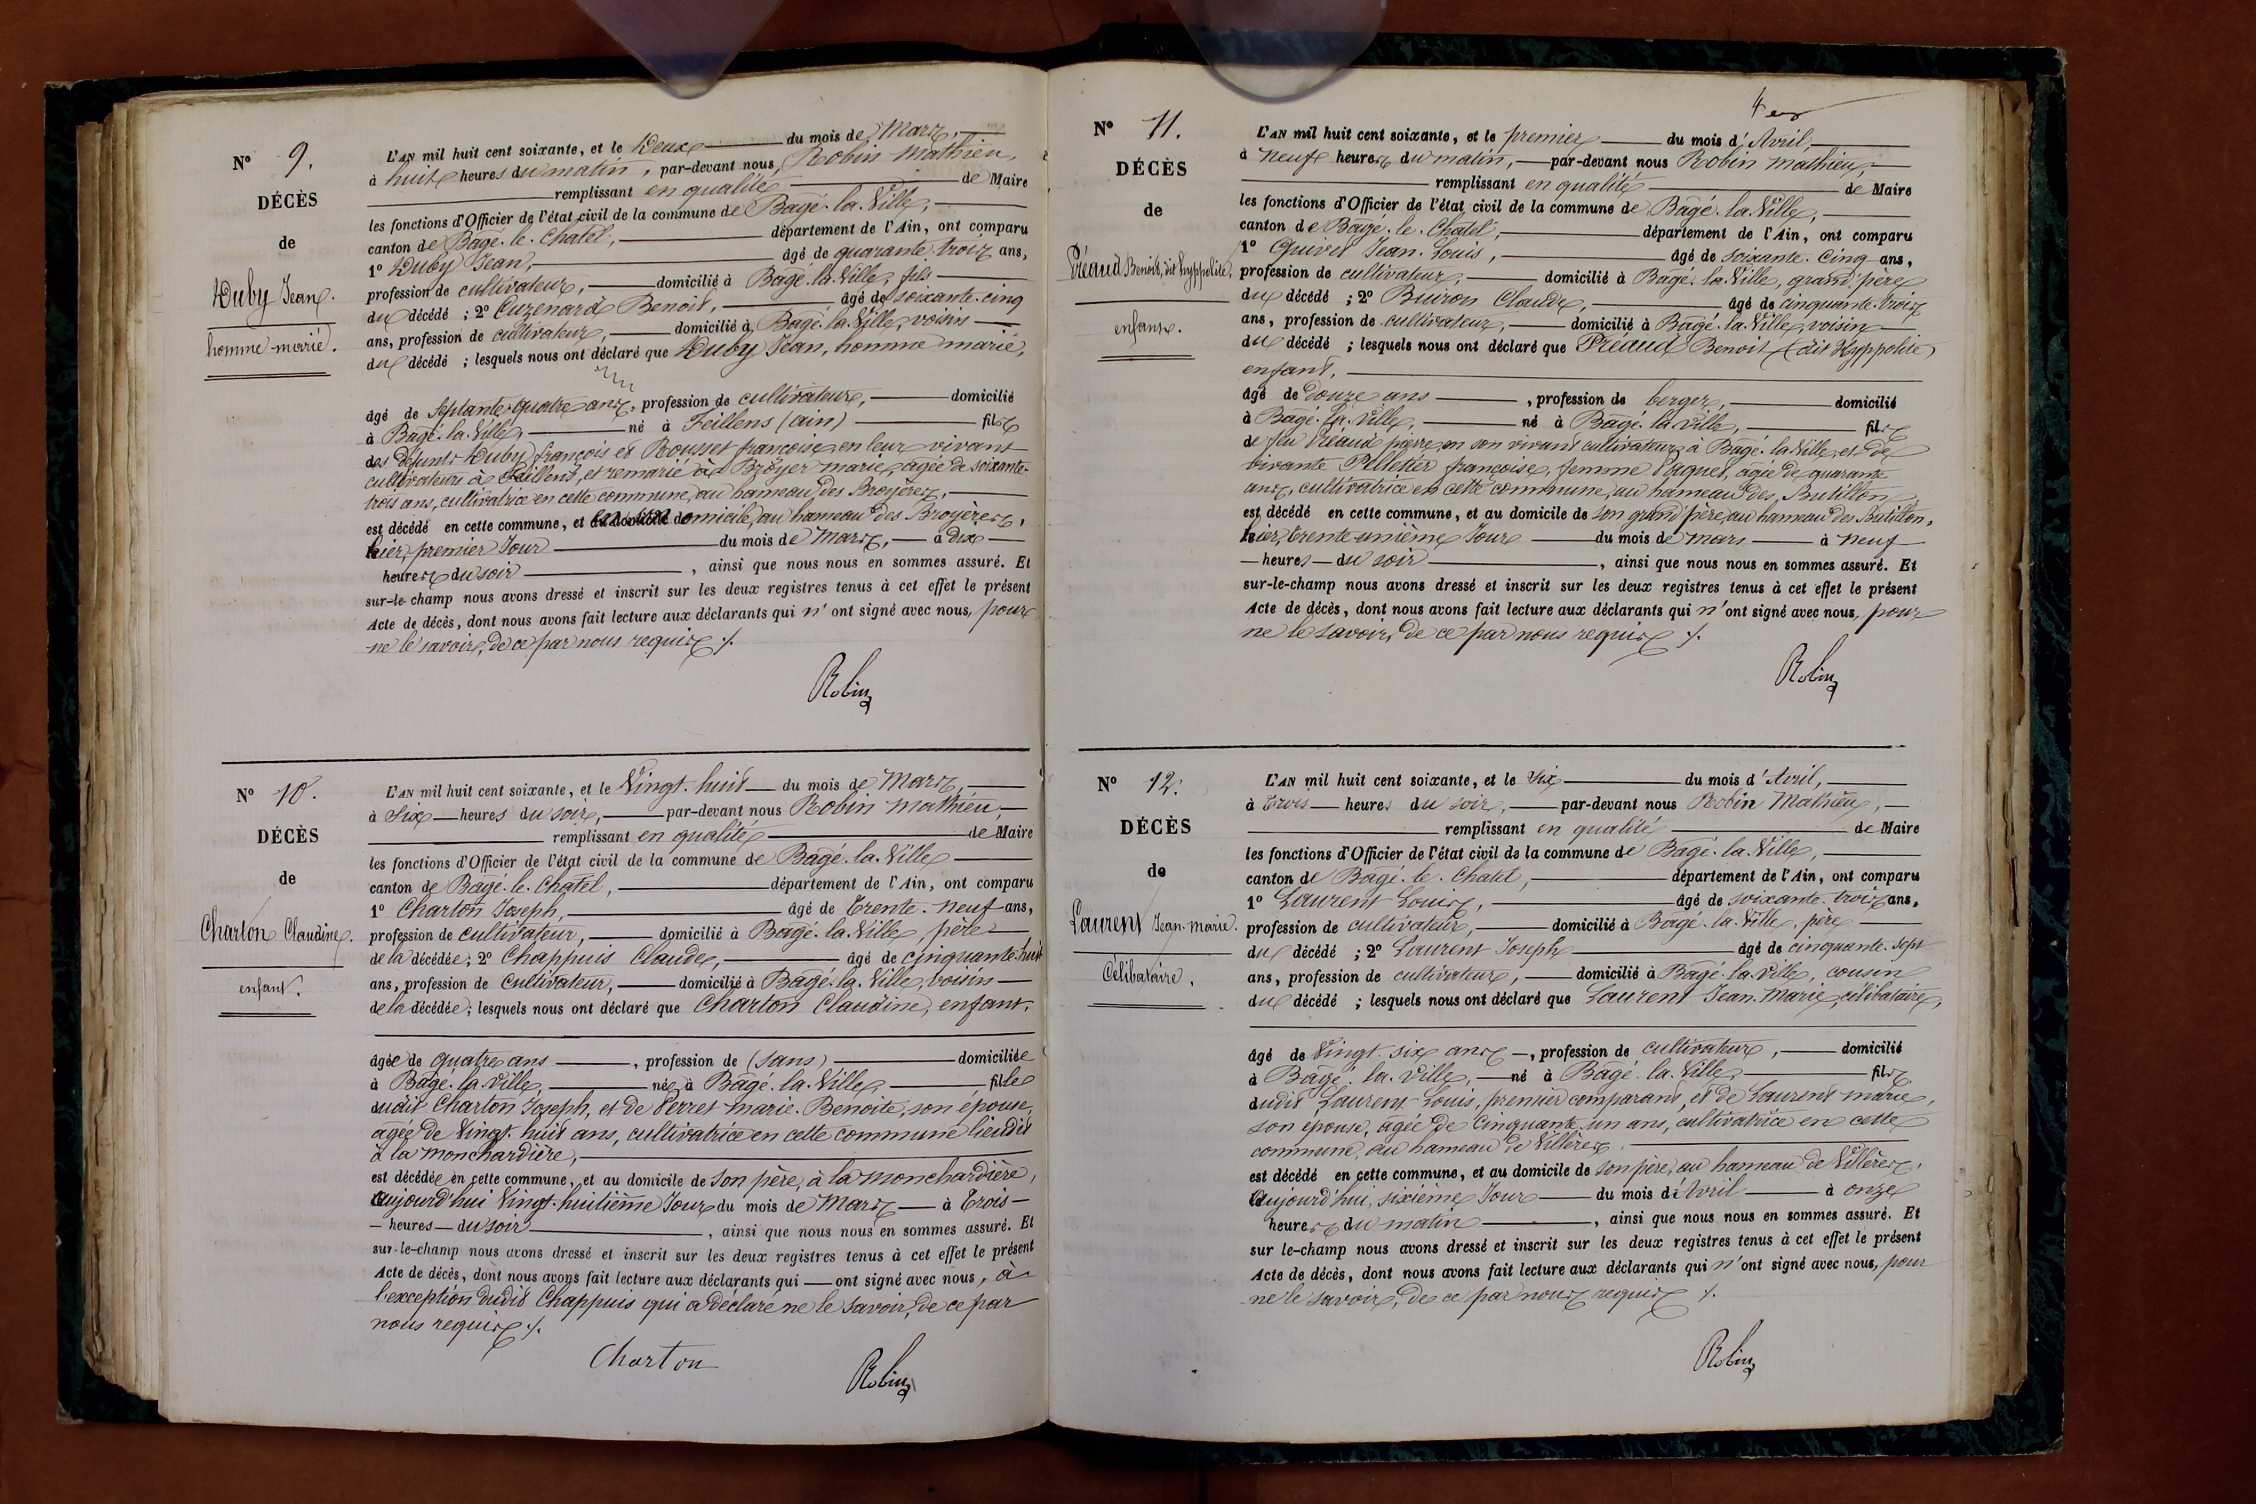 N° 9.
DÉCÈS
de
Duby Jean.
homme marié.
L'AN mil huit cent soixante, et le Deux du mois de Mars,
à huit heures du matin, par-devant nous Robin Mathieu,
remplissant en qualité de Maire
les fonctions d'Officier de l'état civil de la commune de Bagé-la-Ville,
canton de Bagé-le-Chatel, département de l'Ain, ont comparu
1° Duby Jean, âgé de quarante-trois ans,
profession de cultivateur, domicilié à Bagé-la-Ville, fils
du décédé ; 2° Cuzenard Benoit, âgé de soixante-cinq
ans, profession de cultivateur, domicilié à Bagé-la-Ville, voisin
du décédé ; lesquels nous ont déclaré que Duby Jean, homme marié,
âgé de Septante-quatre ans, profession de cultivateur, domicilié
à Bagé-la-Ville, né à Feillens (ain) fils
des défunts Duby françois et Rousset françoise, en leur vivant
cultivateurs à Feillens, et remarié à Bröyer marie, agée de soixante-
trois ans, cultivatrice en cette commune, au hameau des Broyères,
est décédé en cette commune, et domicile, au hameau des Broyères,
hier, premier Jour du mois de Mars, à dix
heures du soir, ainsi que nous nous en sommes assuré. Et
sur-le-champ nous avons dressé et inscrit sur les deux registres tenus à cet effet le présent
Acte de décès, dont nous avons fait lecture aux déclarants qui n'ont signé avec nous, pour
ne le savoir, de ce par nous requis ./.
Robin
N° 10.
DÉCÈS
de
Charton Claudine.
enfant.
L'AN mil huit cent soixante, et le Vingt-huit du mois de Mars,
à Six heures du soir, par-devant nous Robin Mathieu,
remplissant en qualité de Maire
les fonctions d'Officier de l'état civil de la commune de Bagé-la-Ville
canton de Bagé-le-Chatel, département de l'Ain, ont comparu
1° Charton Joseph, âgé de Trente-neuf ans,
profession de cultivateur, domicilié à Bagé-la-Ville, père
de la décédée ; 2° Chappuis Claude, âgé de cinquante-huit
ans, profession de Cultivateur, domicilié à Bagé-la-Ville, voisin
de la décédée ; lesquels nous ont déclaré que Charton Claudine, enfant,
âgée de quatre ans, profession de (sans) domiciliée
à Bagé-la-Ville, née à Bagé-la-Ville, fille
dudit Charton Joseph, et de Perret marie-Benoite, son épouse,
agée de Vingt-huit ans, cultivatrice en cette commune lieudit
à la monchardière,
est décédée en cette commune, et au domicile de son père, à la monchardière,
aujourd'hui Vingt-huitième Jour du mois de Mars à Trois
heures du soir, ainsi que nous nous en sommes assuré. Et
sur-le-champ nous avons dressé et inscrit sur les deux registres tenus à cet effet le présent
Acte de décès, dont nous avons fait lecture aux déclarants qui ont signé avec nous, à
l'exception dudit Chappuis qui a déclaré ne le savoir, de ce par
nous requis ./.
Charton
Robin
4
N° 11.
DÉCÈS
de
Préaud Benoit, dit hyppolite.
enfant.
L'AN mil huit cent soixante, et le premier du mois d'Avril,
à Neuf heures du matin, par-devant nous Robin Mathieu,
remplissant en qualité de Maire
les fonctions d'Officier de l'état civil de la commune de Bagé-la-Ville,
canton de Bagé-le-Chatel, département de l'Ain, ont comparu
1° Guivet Jean-Louis, âgé de soixante-Cinq ans,
profession de cultivateur, domicilié à Bagé-la-Ville, grand'père
du décédé ; 2° Buiron Claude, âgé de cinquante-trois
ans, profession de cultivateur, domicilié à Bagé-la-Ville, voisin
du décédé ; lesquels nous ont déclaré que Préaud Benoit (dit Hyppolite)
enfant,
âgé de Douze ans, profession de berger, domicilié
à Bagé-la-Ville, né à Bagé-la-Ville, fils
de feu Préaud pierre, en son vivant cultivateur à Bagé-la-Ville, et de
vivante Pelletier françoise, femme Paquet, agée de quarante
ans, cultivatrice en cette commune, au hameau des Butillon,
est décédé en cette commune, et au domicile de son grand'père, au hameau des Butillon,
hier, trente-unième Jour du mois de mars à neuf
heures du soir, ainsi que nous nous en sommes assuré. Et
sur-le-champ nous avons dressé et inscrit sur les deux registres tenus à cet effet le présent
Acte de décès, dont nous avons fait lecture aux déclarants qui n'ont signé avec nous, pour
ne le savoir, de ce par nous requis ./.
Robin
N° 12.
DÉCÈS
de
Laurent Jean-marie.
Célibataire.
L'AN mil huit cent soixante, et le Six du mois d'Avril,
à Trois heures du soir, par-devant nous Robin Mathieu,
remplissant en qualité de Maire
les fonctions d'Officier de l'état civil de la commune de Bagé-la-Ville,
canton de Bagé-le-Chatel, département de l'Ain, ont comparu
1° Laurent Louis, âgé de soixante-trois ans,
profession de cultivateur, domicilié à Bagé-la-Ville, père
du décédé ; 2° Laurent Joseph âgé de cinquante-sept
ans, profession de cultivateur, domicilié à Bagé-la-Ville, cousin
du décédé ; lesquels nous ont déclaré que Laurent Jean-Marie, célibataire,
âgé de Vingt-six ans, profession de cultivateur, domicilié
à Bagé-la-Ville, né à Bagé-la-Ville, fils
dudit Laurent Louis, premier comparant, et de Laurent marie,
son épouse, agée de Cinquante un ans, cultivatrice en cette
commune, au hameau de Villères,
est décédé en cette commune, et au domicile de son père, au hameau de Villères,
aujourd'hui, sixième Jour du mois d'Avril à onze
heures du matin, ainsi que nous nous en sommes assuré. Et
sur le-champ nous avons dressé et inscrit sur les deux registres tenus à cet effet le présent
Acte de décès, dont nous avons fait lecture aux déclarants qui n'ont signé avec nous, pour
ne le savoir, de ce par nous requis ./.
Robin